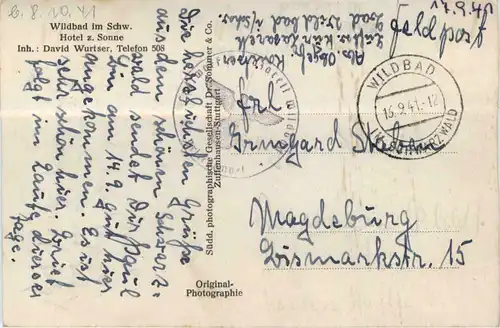 6.8.10.41
Wildbad im Schw.
Hotel z. Sonne
Inh.: David Wurtser, Telefon 508
Die herzlichsten Grüße
aus dem schönen Schwarz-
wald sendet Dir Paul
Bin am 14.9. gut hier
angekommen. Es ist
sehr schön hier. Brief
folgt im Laufe dieser
Tage.
Südd. photographische Gesellschaft D. Sommer & Co.
Zuffenhausen-Stuttgart
Original-
Photographie
Abs. Obgefr.
Bad Wildbad i/Schw.
Feldpost
WILDBAD
16.9.41.-12
(SCHWARZWALD)
Frl.
Irmgard
Magdeburg
Bismarkstr. 15